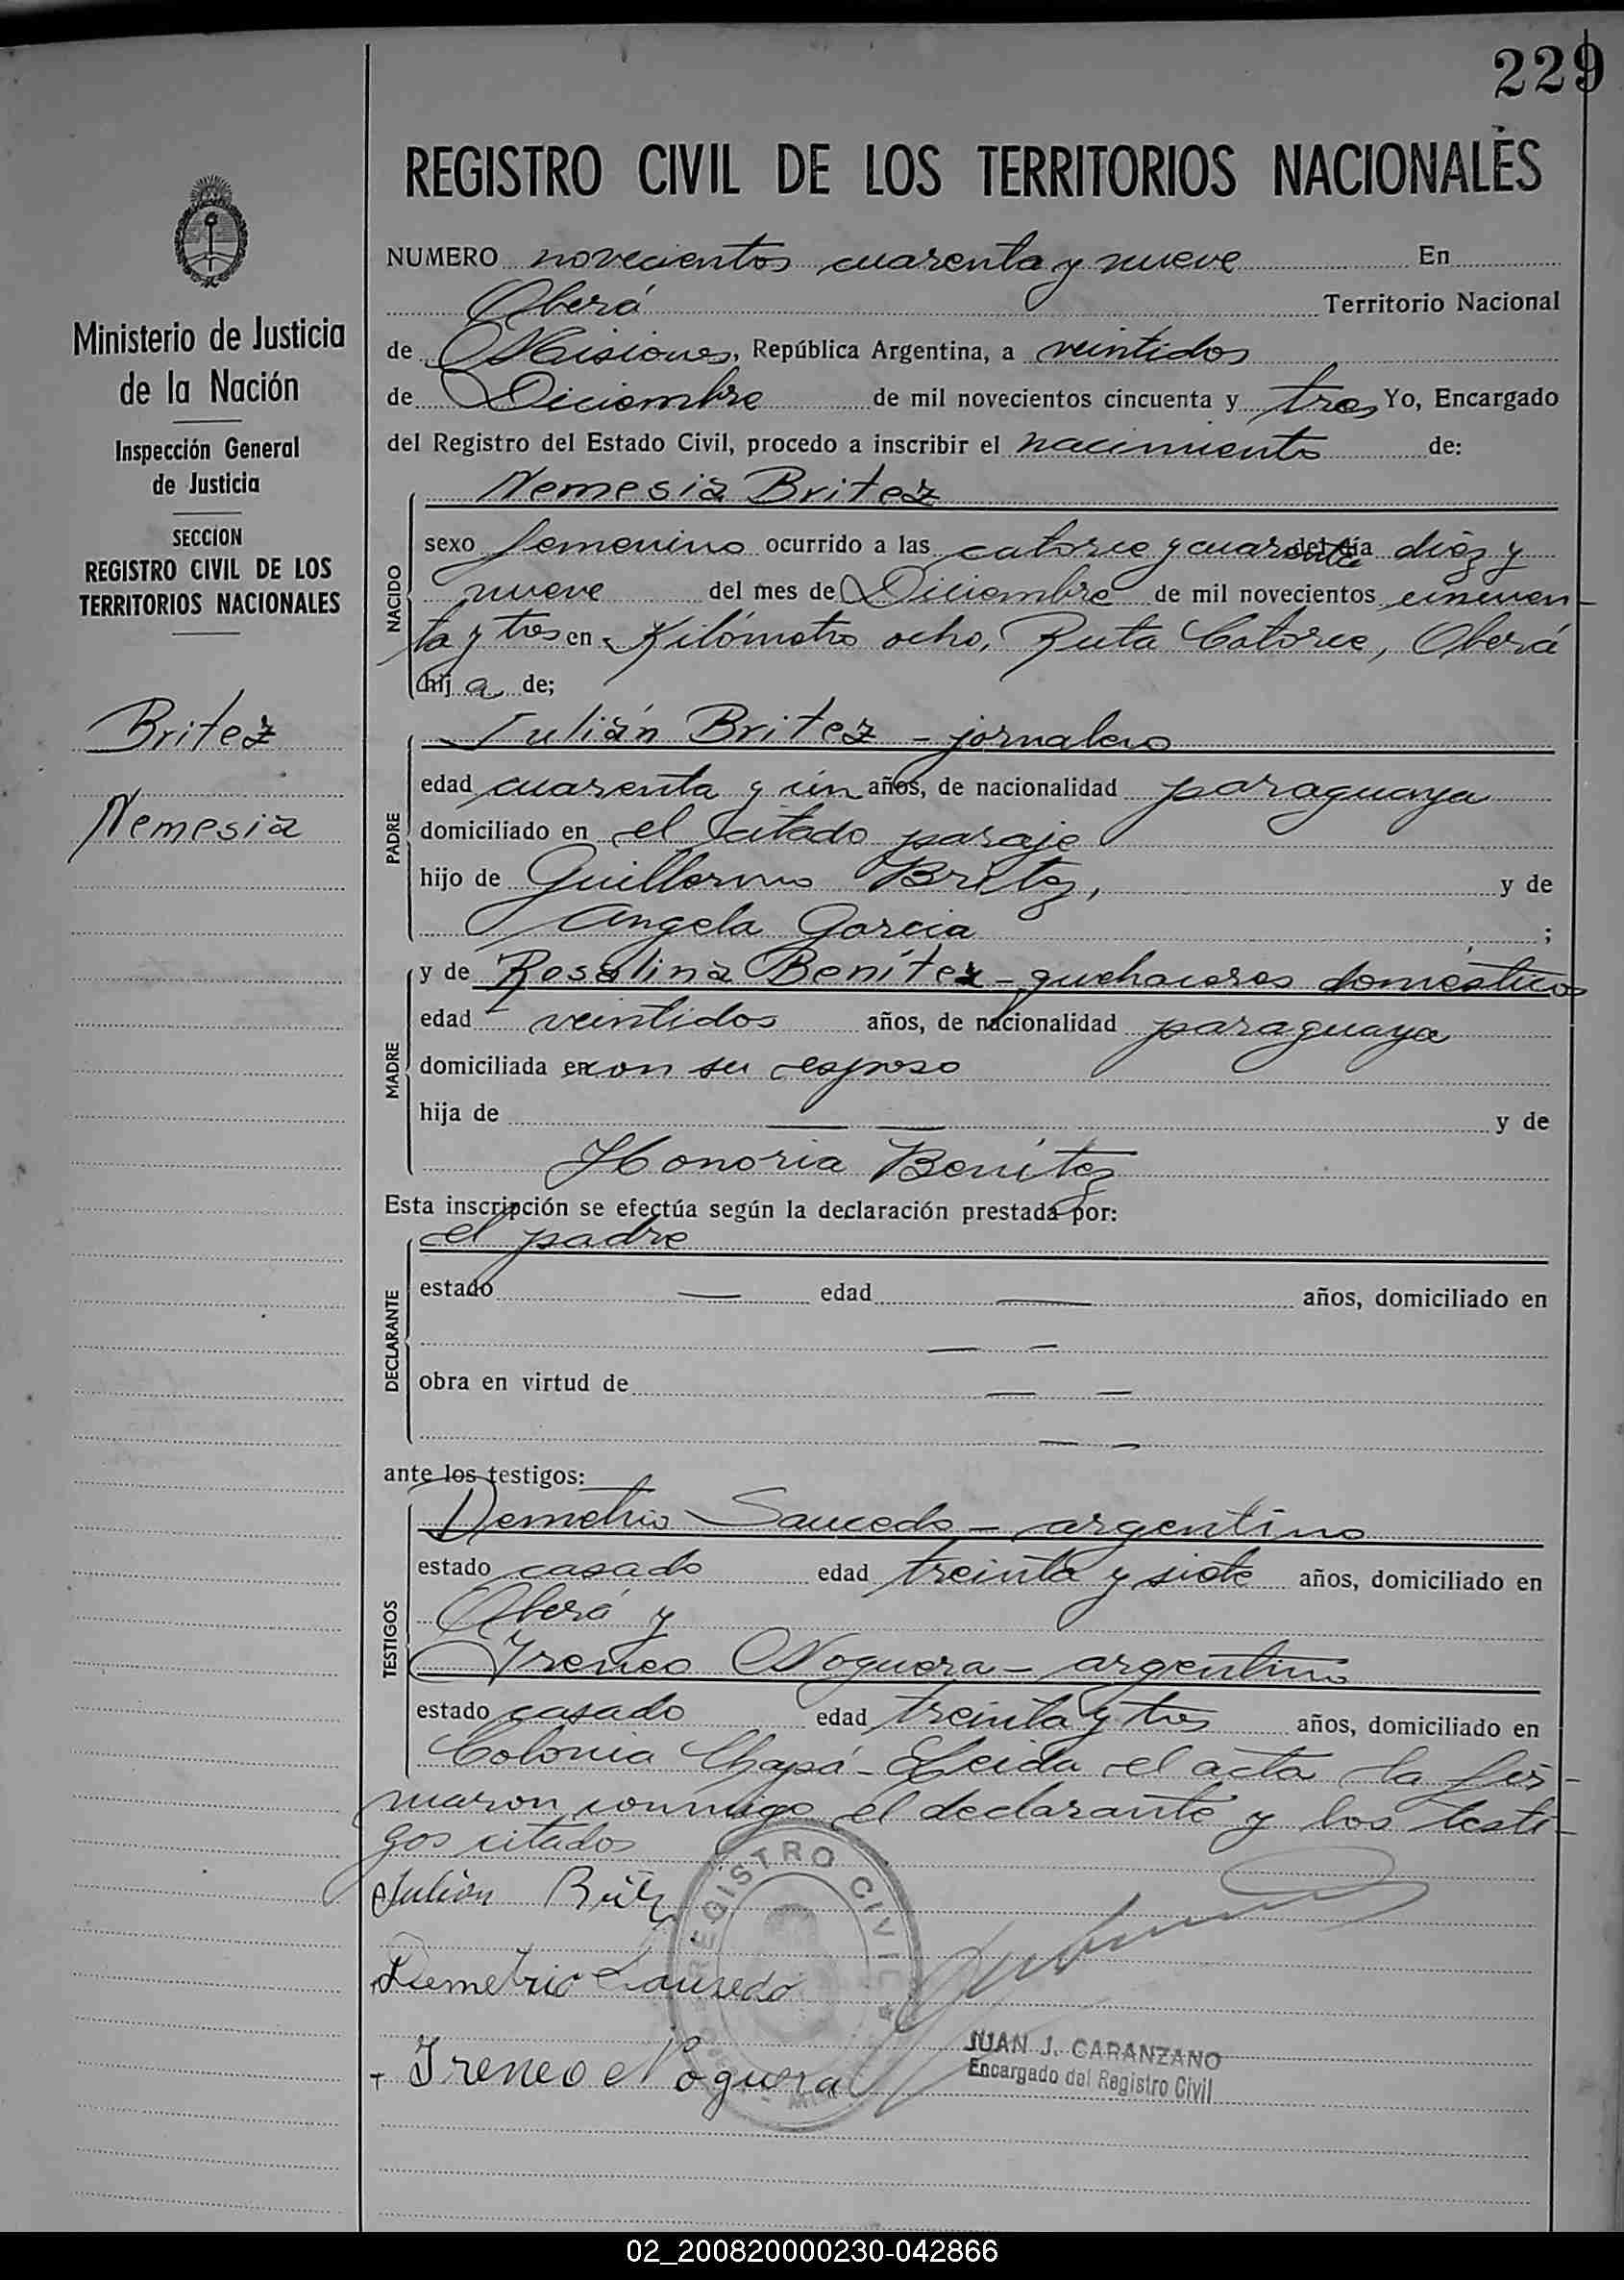 229
REGISTRO CIVIL DE LOS TERRITORIOS NACIONALES
Ministerio de Justicia
de la Nación
Inspección General
de Justicia
SECCION
REGISTRO CIVIL DE LOS
TERRITORIOS NACIONALES
Britez
Nemesia
NUMERO novecientos cuarenta y nueve En
Oberá Territorio Nacional
de Misiones, República Argentina, a veintidos
de Diciembre de mil novecientos cincuenta y tres Yo, Encargado
del Registro del Estado Civil, procedo a inscribir el nacimiento de:
NACIDO
Nemesia Britez
sexo femenino ocurrido a las catorce y cuarenta del día diez y
nueve del mes de Diciembre de mil novecientos cincuen-
ta y tres en Kilómetro ocho, Ruta Catorce, Oberá
hij a de;
PADRE
Julián Britez - jornalero
edad cuarenta y un años, de nacionalidad paraguaya
domiciliado en el citado paraje
hijo de Guillermo Britez, y de
Angela Garcia ;
MADRE
y de Rosalina Benítez - quehaceres domésticos
edad veintidos años, de nacionalidad paraguaya
domiciliada en con su esposo
hija de — — y de
Honoria Benítez
Esta inscripción se efectúa según la declaración prestada por:
DECLARANTE
el padre
estado — edad — años, domiciliado en
— —
obra en virtud de — —
— —
ante los testigos:
TESTIGOS
Demetrio Saucedo - argentino
estado casado edad treinta y siete años, domiciliado en
Oberá y
Ireneo Noguera - argentino
estado casado edad treinta y tres años, domiciliado en
Colonia Chapá - Leida el acta la fir-
maron conmigo el declarante y los testi-
gos citados
Julian Britez
Demetrio Sausedo
Ireneo Noguera
REGISTRO CIVIL
JUAN J. CARANZANO
Encargado del Registro Civil
02_200820000230-042866